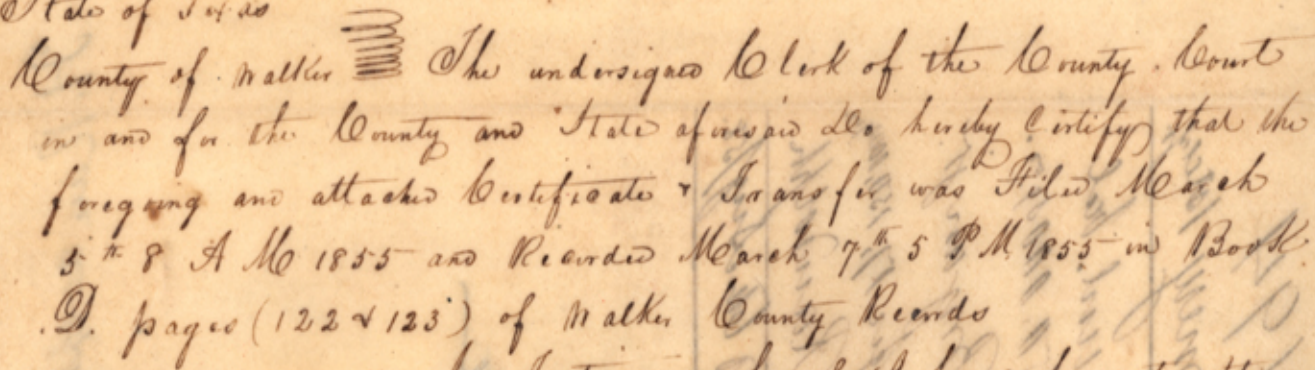 State of Texas
County of Walker The undersigned Clerk of the County Court
in and for the County and State aforesaid Do hereby Certify that the
foregoing and attached Certificate & Transfer was Filed March
5th 8 A M 1855 and Recorded March 7th 5 P M 1855 in Book
.D. pages (122 & 123) of Walker County Records